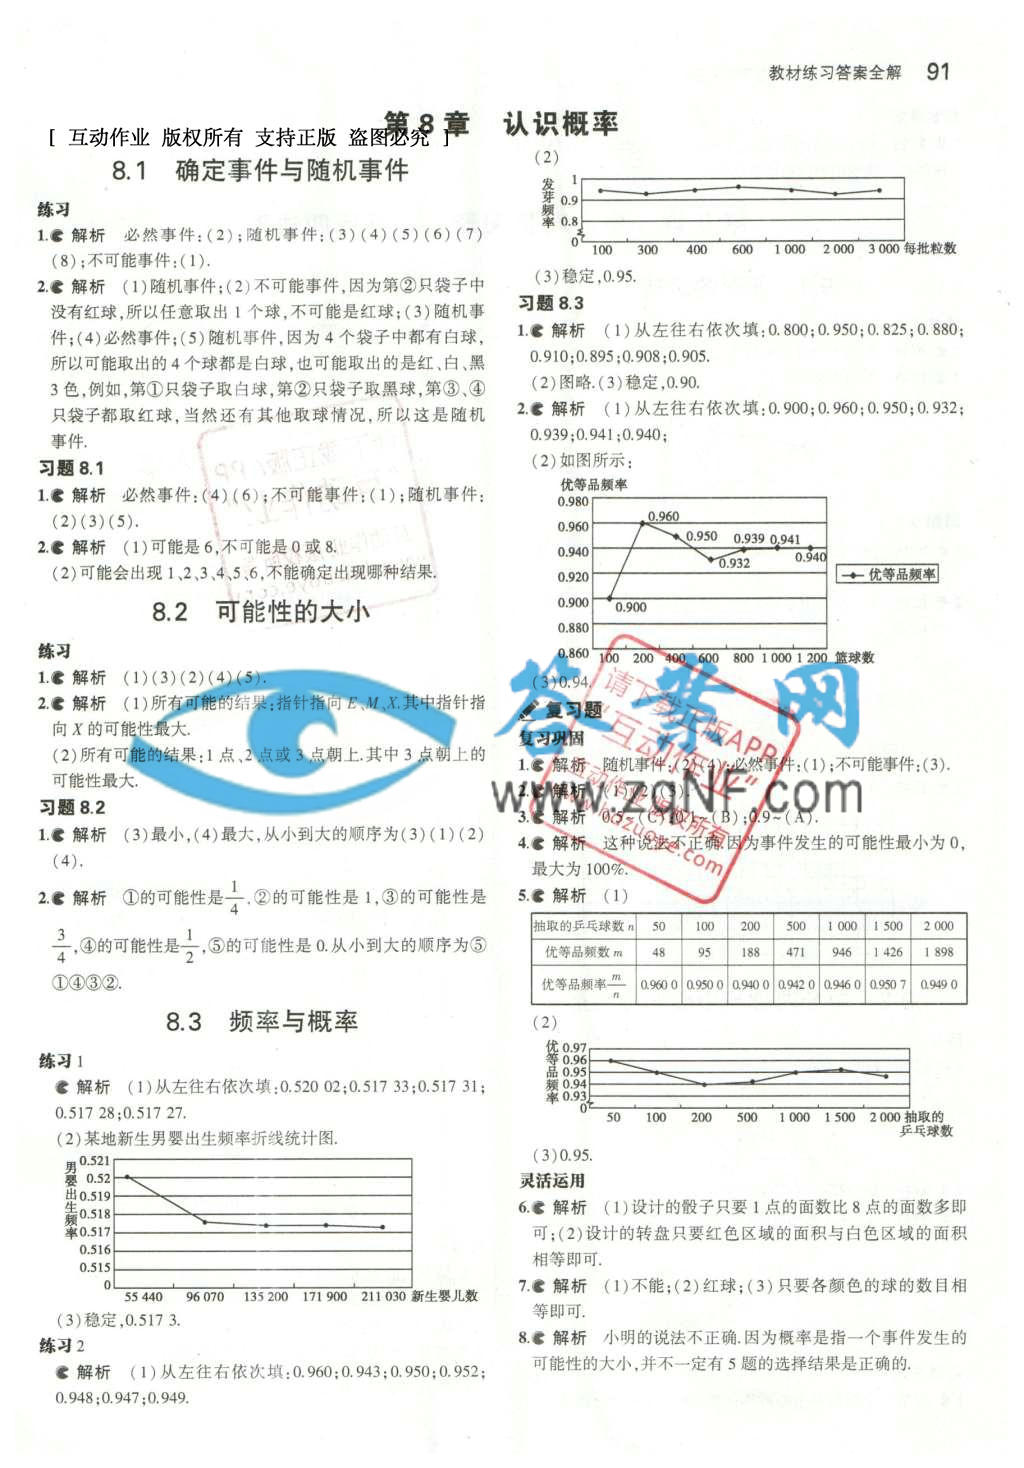 教材练习答案全解 91
第8章 认识概率
[ 互动作业 版权所有 支持正版 盗图必究 ]
8.1 确定事件与随机事件
练习
1. 解析 必然事件:(2);随机事件:(3)(4)(5)(6)(7)
(8);不可能事件:(1).
2. 解析 (1)随机事件;(2)不可能事件,因为第②只袋子中
没有红球,所以任意取出1个球,不可能是红球;(3)随机事
件;(4)必然事件;(5)随机事件,因为4个袋子中都有白球,
所以可能取出的4个球都是白球,也可能取出的是红、白、黑
3色,例如,第①只袋子取白球,第②只袋子取黑球,第③、④
只袋子都取红球,当然还有其他取球情况,所以这是随机
事件.
习题8.1
1. 解析 必然事件:(4)(6);不可能事件:(1);随机事件:
(2)(3)(5).
2. 解析 (1)可能是6,不可能是0或8.
(2)可能会出现1、2、3、4、5、6,不能确定出现哪种结果.
8.2 可能性的大小
练习
1. 解析 (1)(3)(2)(4)(5).
2. 解析 (1)所有可能的结果:指针指向E、M、X.其中指针指
向X的可能性最大.
(2)所有可能的结果:1点、2点或3点朝上.其中3点朝上的
可能性最大.
习题8.2
1. 解析 (3)最小,(4)最大,从小到大的顺序为(3)(1)(2)
(4).
2. 解析 ①的可能性是1/4.②的可能性是1,③的可能性是
3/4,④的可能性是1/2,⑤的可能性是0.从小到大的顺序为⑤
①④③②.
8.3 频率与概率
练习1
解析 (1)从左往右依次填:0.520 02;0.517 33;0.517 31;
0.517 28;0.517 27.
(2)某地新生男婴出生频率折线统计图.
男婴出生频率
0.521
0.52
0.519
0.518
0.517
0.516
0.515
0
55 440 96 070 135 200 171 900 211 030 新生婴儿数
(3)稳定,0.517 3.
练习2
解析 (1)从左往右依次填:0.960;0.943;0.950;0.952;
0.948;0.947;0.949.
(2)
发芽频率
1
0.9
0.8
0
100 300 400 600 1 000 2 000 3 000 每批粒数
(3)稳定,0.95.
习题8.3
1. 解析 (1)从左往右依次填:0.800;0.950;0.825;0.880;
0.910;0.895;0.908;0.905.
(2)图略.(3)稳定,0.90.
2. 解析 (1)从左往右依次填:0.900;0.960;0.950;0.932;
0.939;0.941;0.940;
(2)如图所示:
优等品频率
0.980
0.960
0.940
0.920
0.900
0.880
0.860
0.960
0.950
0.939 0.941
0.932
0.940
0.900
优等品频率
100 200 400 600 800 1 000 1 200 篮球数
(3)0.94.
复习题
复习巩固
1. 解析 随机事件:(2)(4);必然事件:(1);不可能事件:(3).
2. 解析 (1)(2)(3).
3. 解析 0.5~(C);0.1~(B);0.9~(A).
4. 解析 这种说法不正确.因为事件发生的可能性最小为0,
最大为100%.
5. 解析 (1)
抽取的乒乓球数n 50 100 200 500 1 000 1 500 2 000
优等品频数m 48 95 188 471 946 1 426 1 898
优等品频率m/n 0.960 0 0.950 0 0.940 0 0.942 0 0.946 0 0.950 7 0.949 0
(2)
优等品频率
0.97
0.96
0.95
0.94
0.93
0
50 100 200 500 1 000 1 500 2 000 抽取的
乒乓球数
(3)0.95.
灵活运用
6. 解析 (1)设计的骰子只要1点的面数比8点的面数多即
可;(2)设计的转盘只要红色区域的面积与白色区域的面积
相等即可.
7. 解析 (1)不能;(2)红球;(3)只要各颜色的球的数目相
等即可.
8. 解析 小明的说法不正确.因为概率是指一个事件发生的
可能性的大小,并不一定有5题的选择结果是正确的.
答案网
www.zqNF.com
请下载正版APP
"互动作业"
互动作业 版权所有
www.hdzuoye.com